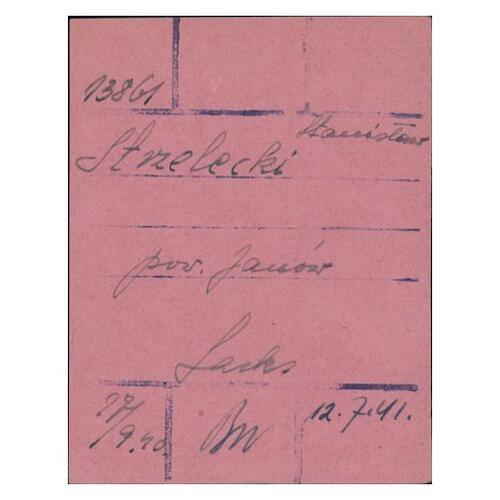 13861
Stanisław
Strzelecki
pow. Janów
Sachs
17/9.40 BW 12.7.41.